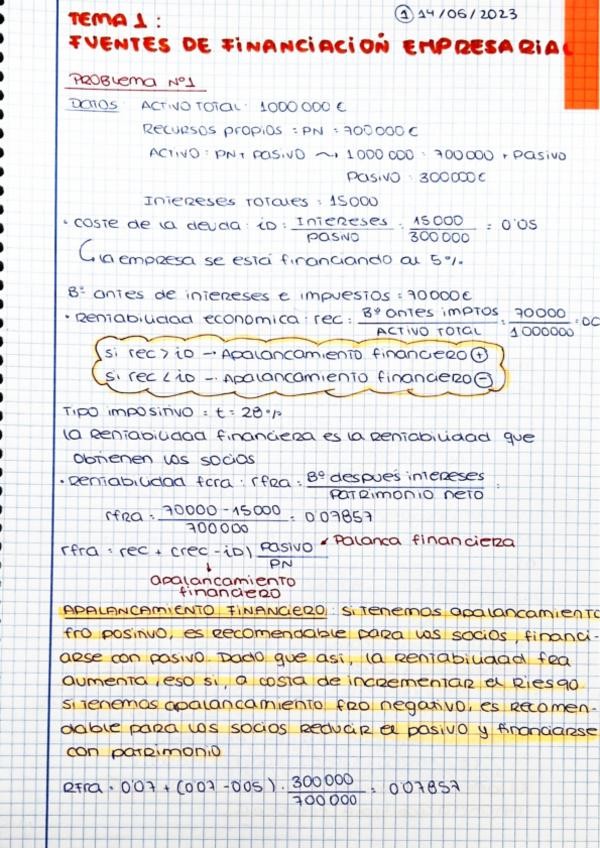 ① 14/06/2023
TEMA 1:
FUENTES DE FINANCIACIÓN EMPRESARIAL
PROBLEMA Nº1
DATOS: ACTIVO TOTAL: 1000000 €
RECURSOS PROPIOS = PN = 700000 €
ACTIVO = PN + PASIVO ⤳ 1000000 = 700000 + PASIVO
PASIVO = 300000 €
INTERESES TOTALES = 15000
· COSTE DE LA DEUDA: iD = INTERESES / PASIVO = 15000 / 300000 = 0'05
↳ la empresa se está financiando al 5%
Bº antes de intereses e impuestos = 70000 €
· Rentabilidad económica: rec = Bº antes imptos / ACTIVO TOTAL = 70000 / 1000000 = 00
si rec > iD → Apalancamiento financiero ⊕
si rec < iD → Apalancamiento financiero ⊖
Tipo impositivo = t = 28%
la rentabilidad financiera es la rentabilidad que
obtienen los socios
· Rentabilidad fcra: rfra = Bº después intereses / PATRIMONIO NETO =
rfra = 70000 - 15000 / 700000 = 0'07857
rfra = rec + (rec - iD) PASIVO / PN ↗ Palanca financiera
↓
apalancamiento
financiero
APALANCAMIENTO FINANCIERO: si tenemos apalancamiento
fro positivo, es recomendable para los socios, financi-
arse con pasivo. Dado que así, la rentabilidad fra
aumenta, eso sí, a costa de incrementar el riesgo
si tenemos apalancamiento fro negativo, es recomen-
dable para los socios reducir el pasivo y financiarse
con patrimonio
Rfra = 0'07 + (0'07 - 0'05) · 300000 / 700000 = 0'07857